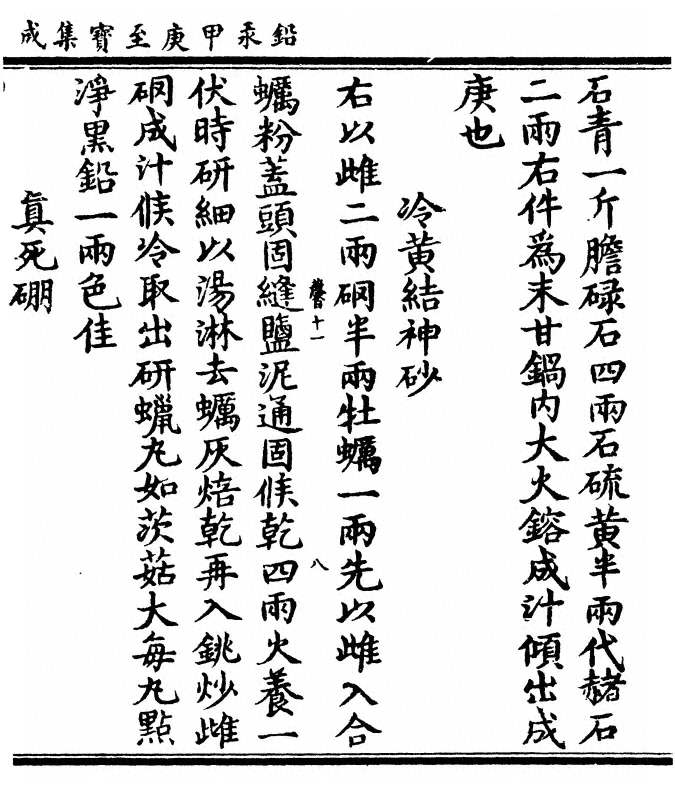 鉛汞甲庚至寶集成
石青一斤膽碌石四兩石硫黃半兩代赭石
二兩右件爲末甘鍋内大火鎔成汁傾出成
庚也
冷黃結神砂
右以雌二兩硇半兩牡蠣一兩先以雌入合
十一
八
蠣粉蓋頭固縫鹽泥通固候乾四兩火養一
伏時研細以湯淋去蠣灰焙乾再入銚炒雌
硇成汁候冷取出研蠟丸如茨菇大每丸點
淨黑鉛一兩色佳
眞死硼